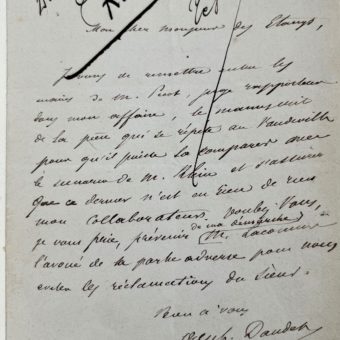 Mon cher monsieur des Etangs,
Je viens de remettre entre les
mains de M. Picot, juge rapporteur
dans mon affaire, le manuscrit
de la pièce qui se répète au Vaudeville
pour qu'il puisse la comparer avec
le scenario de M. Klein et s'assurer
que ce dernier n'est en rien
mon collaborateur. Voulez-vous,
je vous prie, prévenir de ma démarche M.
l'avoué de la partie adverse pour nous
éviter les réclamations du sieur.
Bien à vous
Daudet